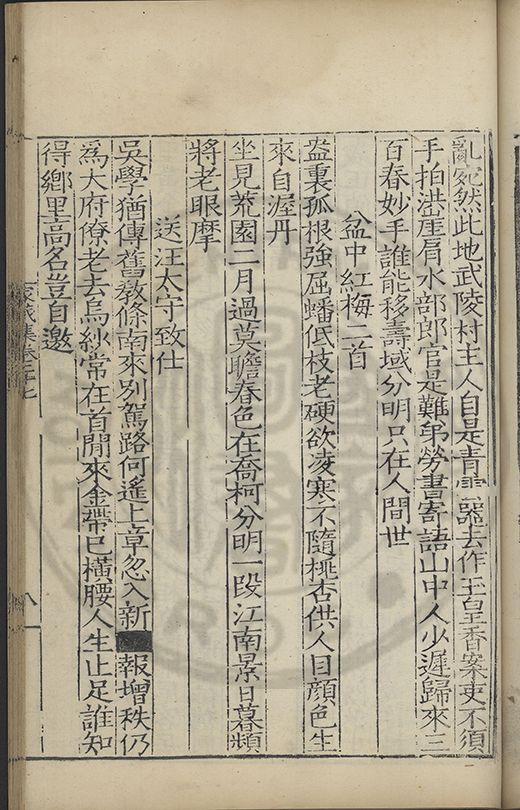 亂宛然此地武陵村主人自是青雲器去作玉皇香案吏不須
手拍洪崖肩水部郎官是難弟勞書寄語山中人少遲歸來三
百春妙手誰能移壽域分明只在人間世
盆中紅梅二首
盆裏孤根強屈蟠低枝老硬欲凌寒不隨桃杏供人目顔色生
來自渥丹
坐見荒園二月過莫瞻春色在喬柯分明一段江南景日暮頻
將老眼摩
送汪太守致仕
吳學猶傳舊教條南來別駕路何遙上章忽入新報增秩仍
爲大府僚老去烏紗常在首閒來金帶已橫腰人生止足誰知
得鄉里高名豈自邀
藏集卷二十七
八